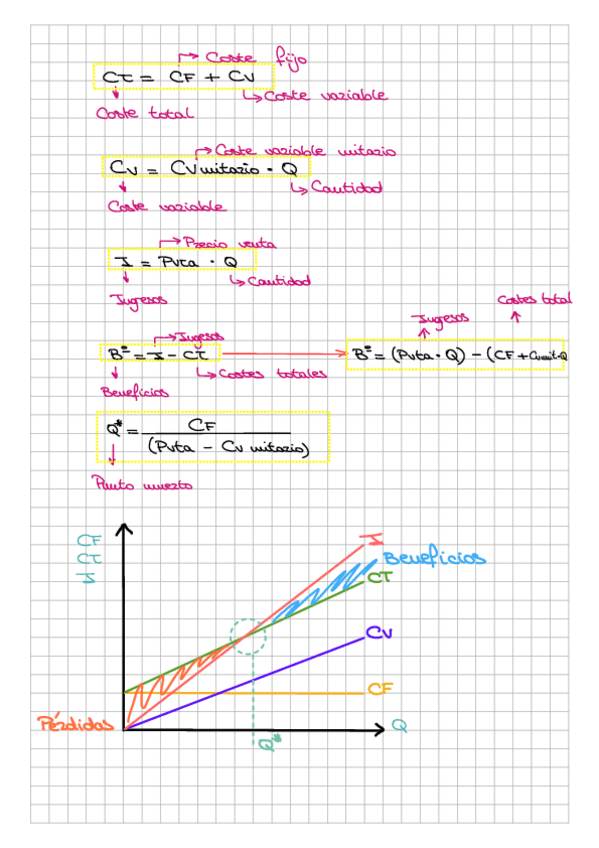 Coste fijo
CT = CF + CV
Coste variable
Coste total
Coste variable unitario
CV = CVunitario · Q
Cantidad
Coste variable
Precio venta
I = Pvta · Q
Cantidad
Ingresos
Costes total
Ingresos
Ingresos
Bº = I - CT
Bº = (Pvta · Q) - (CF + Cvunit·Q
Costes totales
Beneficios
Q* = CF
(Pvta - Cv unitario)
Punto muerto
CF
CT
I
I
Beneficios
CT
CV
CF
Pérdidas
Q
Q*